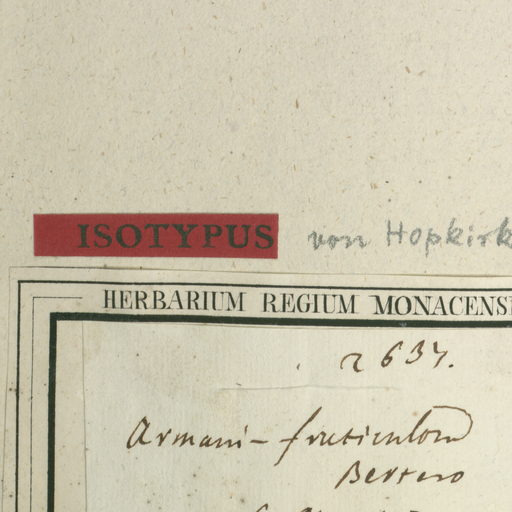 ISOTYPUS von Hopkirk
HERBARIUM REGIUM MONACENS
2637.
Armani – fruticulosa
Bertero